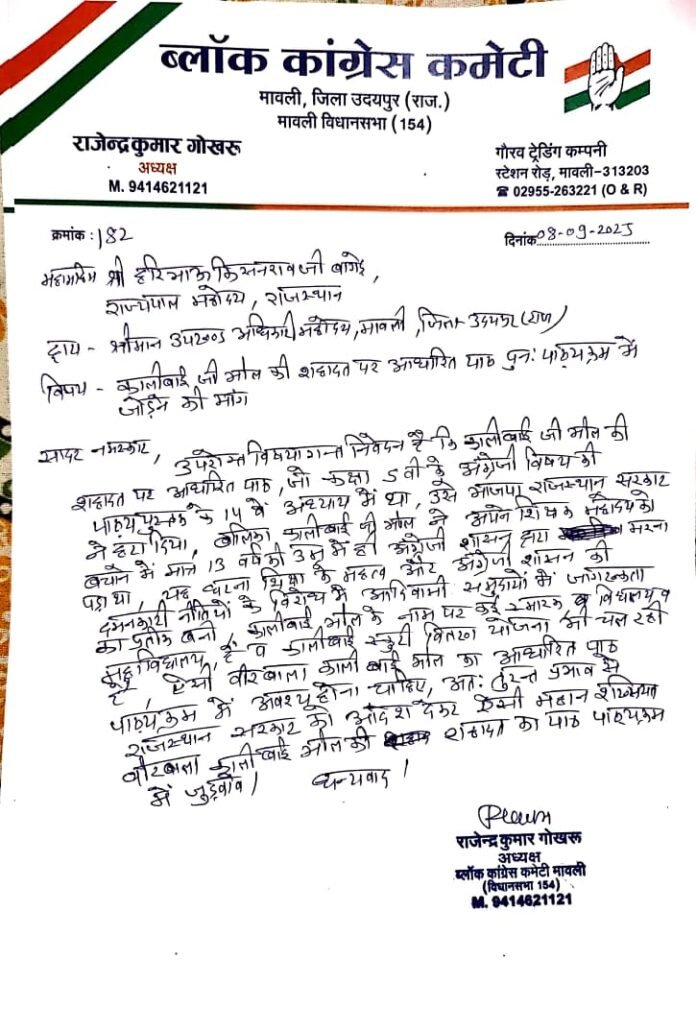 ब्लॉक कांग्रेस कमेटी
मावली, जिला उदयपुर (राज.)
मावली विधानसभा (154)
राजेन्द्रकुमार गोखरू
अध्यक्ष
M. 9414621121
गौरव ट्रेडिंग कम्पनी
स्टेशन रोड़, मावली-313203
☎ 02955-263221 (O & R)
क्रमांक : 182
दिनांक 08-09-2025
महामहिम श्री हरिभाऊ किसनरावजी बागड़े,
राज्यपाल महोदय, राजस्थान
द्वारा - श्रीमान उपखण्ड अधिकारी महोदय, मावली, जिला-उदयपुर (राज)
विषय - कालीबाई जी भील की शहादत पर आधारित पाठ पुनः पाठ्यक्रम में
जोड़ने की मांग
सादर नमस्कार,
उपरोक्त विषयान्गत निवेदन है कि कालीबाई जी भील की
शहादत पर आधारित पाठ, जो कक्षा 5 वी के अंग्रेजी विषय की
पाठ्यपुस्तक के 14 वें अध्याय में था, उसे भाजपा राजस्थान सरकार
ने हटा दिया, बालिका कालीबाई जी भील ने अपने शिक्षक महोदय को
बचाने में मात्र 13 वर्ष की उम्र में ही अंग्रेजी शासन द्वारा मरना
पड़ा था, यह घटना शिक्षा के महत्व और अंग्रेजी शासन की
दमनकारी नीतियों के विरोध में आदिवासी समुदायों में जागरूकता
का प्रतीक बनी, कालीबाई भील के नाम पर कई स्मारक व विद्यालय व
महाविद्यालय, है व कालीबाई स्कूटी वितरण योजना भी चल रही
है, ऐसी वीरबाला काली बाई भील का आधारित पाठ
पाठ्यक्रम में अवश्य होना चाहिए, अतः तुरन्त प्रभाव से
राजस्थान सरकार को आदेश देकर ऐसी महान शख्सियत
वीरबाला कालीबाई भील की शहादत का पाठ पाठ्यक्रम
में जुड़वावे। धन्यवाद।
राजेन्द्र कुमार गोखरू
अध्यक्ष
ब्लॉक कांग्रेस कमेटी मावली
(विधानसभा 154)
M. 9414621121